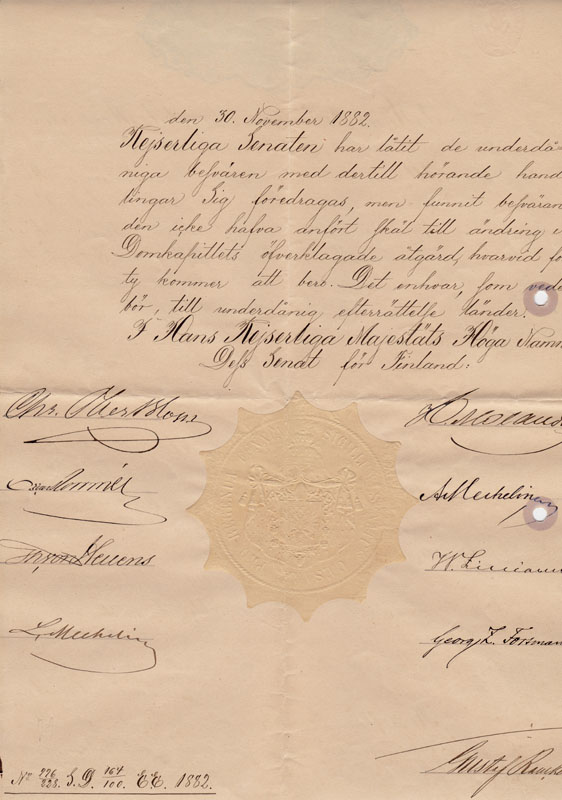 den 30. November 1882.
Kejserliga Senaten har låtit de underdå-
niga besvären med dertill hörande hand
lingar Sig föredragas, men funnit besväran
den icke hafva anfört skäl till ändring i
Domkapitlets öfverklagade åtgärd, hvarvid fö
ty kommer att bero. Det enhvar, som vede
bör, till underdånig efterrättelse länder.
I Hans Kejserliga Majestäts Höga Namn
Dess Senat för Finland:
Chr. Oker Blom
A. Mechelin
L. Mechelin
Georg Z. Forsman
Gustaf
No 226/228. S. D. 164/100. E E. 1882.